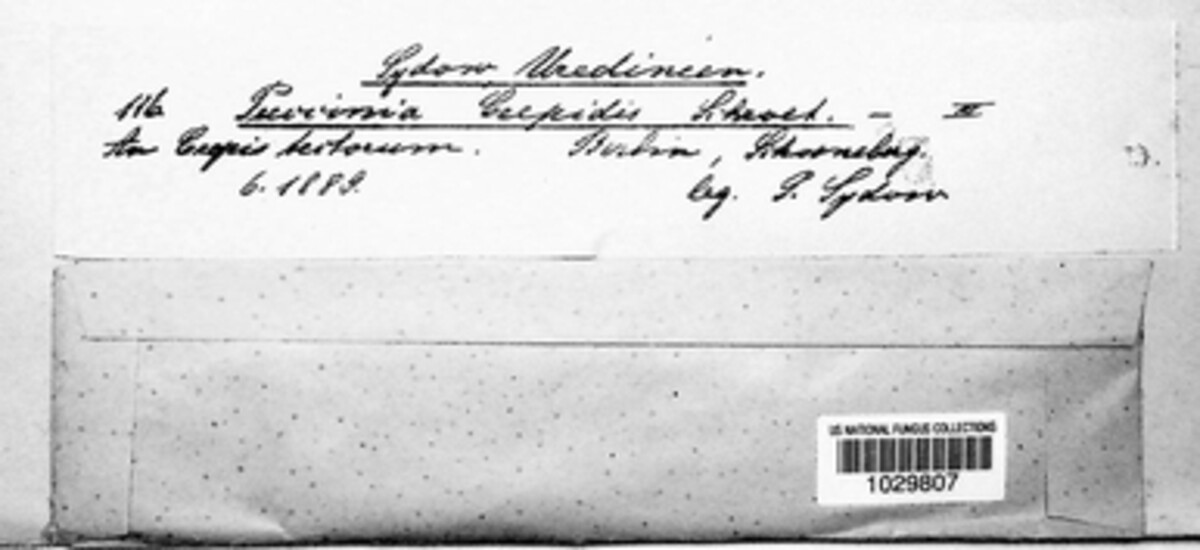 Sydow, Uredineen.
116 Puccinia Crepidis Schroet. – III
An Crepis tectorum. Berlin, Schöneberg.
6. 1889. leg. P. Sydow
US NATIONAL FUNGUS COLLECTIONS
1029807